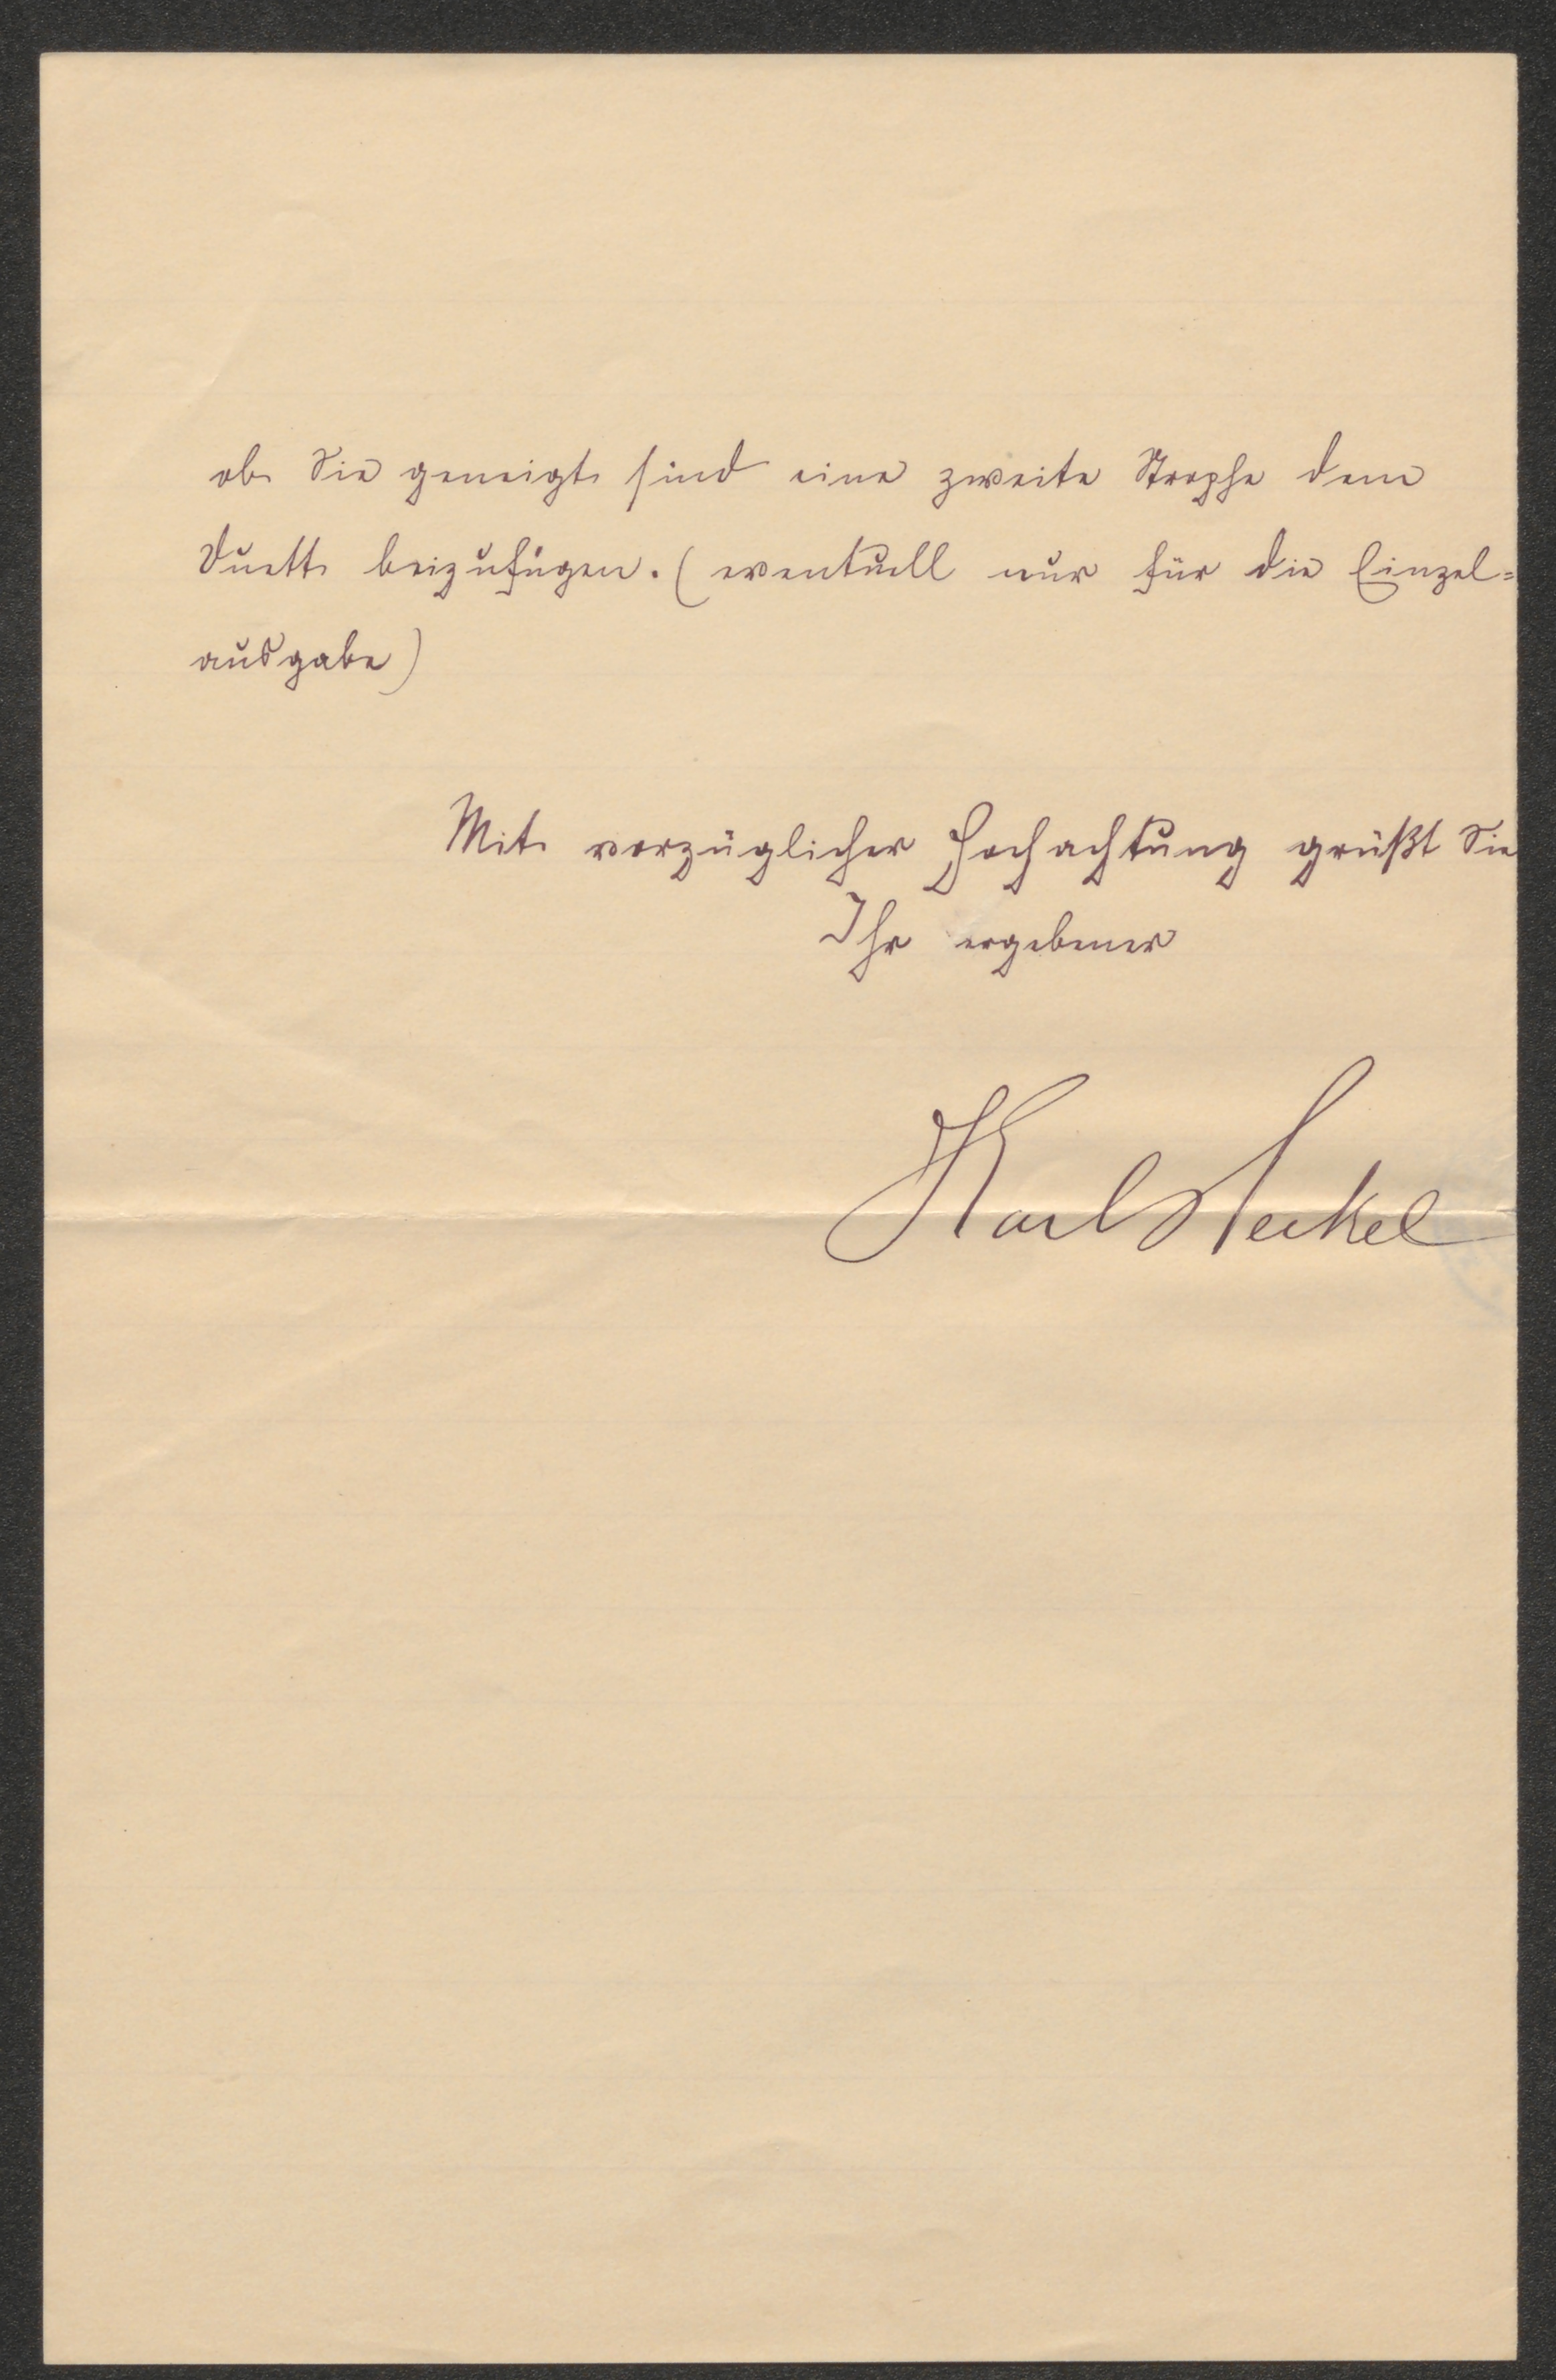 ob Sie geneigt sind eine zweite Strophe dem
Duett beizufügen. (eventuell nur für die Einzel=
ausgabe)
Mit vorzüglicher Hochachtung grüßt Sie
Ihr ergebener
Karl Heckel